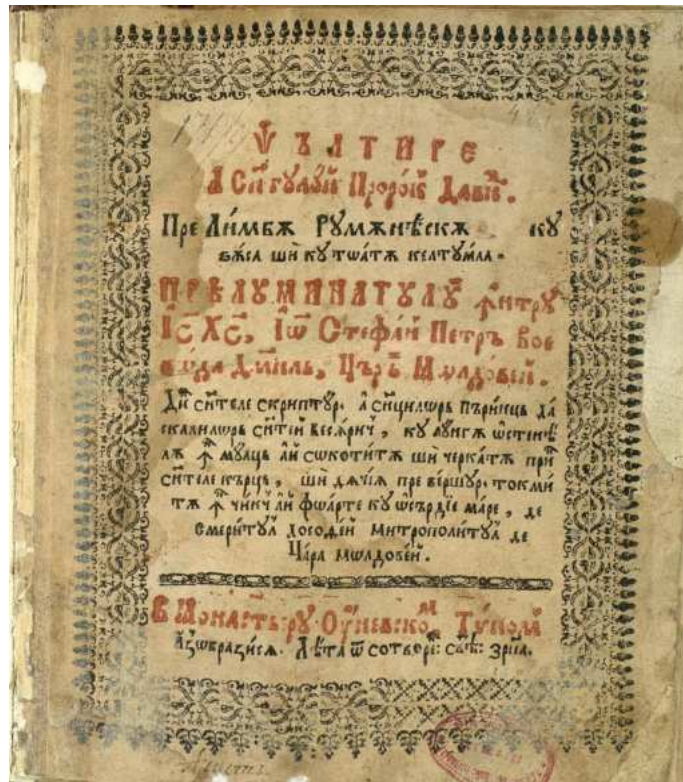 ѰЪЛТИРЕ
А Сн҃тулуй Прорѻ́к Дави́д.
Пре Ли́мбѫ Румѫнѣскѫ ку
зи́са ши ку тѡатѫ келтуѧла.
ПРѢЛУМИНАТУЛУЙ ꙟтру
І҃С Х҃С, Іѡ Стефа́н Петръ Вое
вѡда Дмнль, Църъ Мѡлдовей.
Ди́н сн҃теле скриптур. а сн҃цилѡръ пъринць да
скалилѡръ сн҃тей бесѧричй, ку лунгѫ ѡстенѣ
лѫ ꙟ мулць ай сокотитѫ ши черкатѫ при́н
сн҃теле кърць, ши д'ачіѧ пре вершур. токми
тѫ ꙟ чинчй ай фѡарте ку ѡсърдїе маре, де
смеритул Досоѳей Митрополитул де
Цара Мѡлдовей.
В Монастыру Оуневском Тѵпом
Изѡбразисѧ. Лѣта ѿ сотворе: свѣ: ЗРПА.